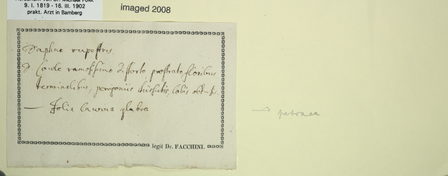 9. I. 1819 - 16. III. 1902
prakt. Arzt in Bamberg
imaged 2008
Daphne rupestris.
Caule ramosissimo distorto prostrato, floribus
terminalibus,
— Folia laevia glabra
legit Dr. FACCHINI.
petraea